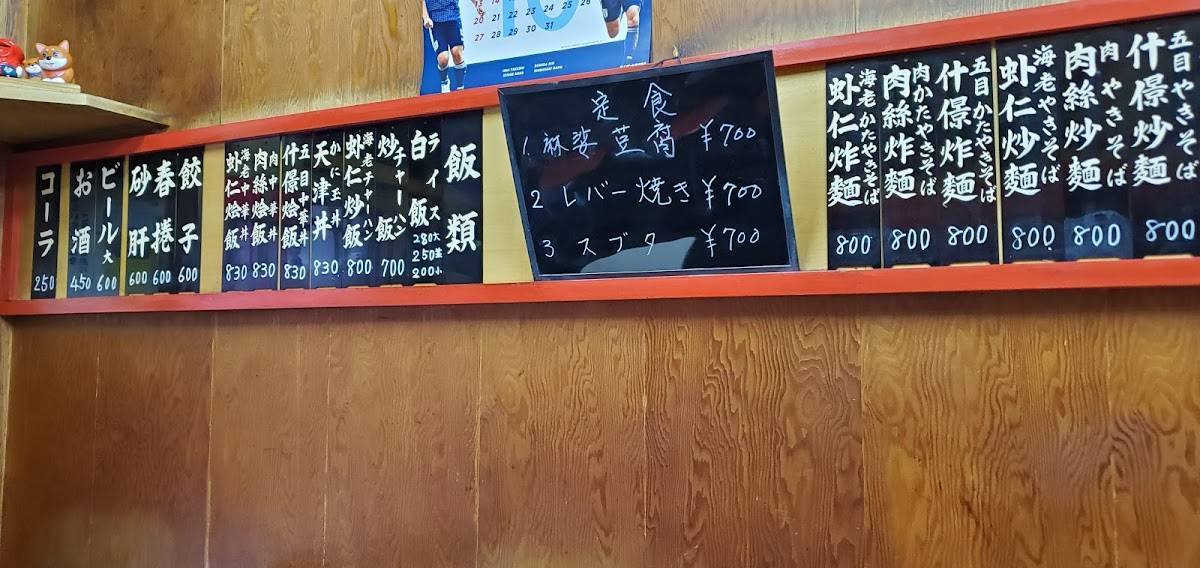 13 14 15 16 17 18 19
20 21 22 23 24 25 26
27 28 29 30 31
五目やきそば
什憬炒麺 800
肉やきそば
肉絲炒麺 800
海老やきそば
虾仁炒麺 800
五目かたやきそば
什憬炸麺 800
肉かたやきそば
肉絲炸麺 800
海老かたやきそば
虾仁炸麺 800
定食
1. 麻婆荳腐 ¥700
2 レバー焼き ¥700
3 スブタ ¥700
飯類
ライス
白飯 280大 250並 200小
チャーハン
炒飯 700
海老チャーハン
虾仁炒飯 800
かに玉丼
天津丼 830
五目中華丼
什憬燴飯 830
肉中華丼
肉絲燴飯 830
海老中華丼
虾仁燴飯 830
餃子 600
春捲 600
砂肝 600
ビール大 600
お酒 450
コーラ 250